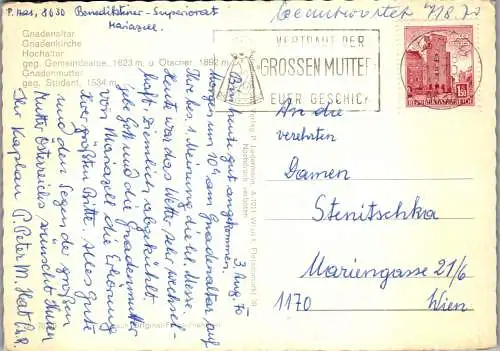 P. Has, 8630 Benediktiner-Superiorat
Mariazell
Gnadenaltar
Gnadenkirche
Hochaltar
geg. Gemeindealpe, 1623 m, u. Ötscher, 1892 m
Gnadenmutter
geg. Student, 1534 m
beantwortet 7/8.70
VERTRAUT DER
GROSSEN MUTTER
EUER GESCHICK
REPUBLIK ÖSTERREICH
1.50
3. Aug. 70
Bin heute gut angekommen.
Morgen um 10h am Gnadenaltar auf
Ihre bs. Meinung die hl. Messe.
Heute war das Wetter sehr wechsel-
haft. Ziemlich abgekühlt.
Gebe Gott und die Gnadenmutter
von Mariazell die Erhörung
Ihrer größten Bitte. Alles Gute
und den Segen der großen
Mutter Österreichs wünscht Ihnen
Ihr Kaplan P. Peter M.
An die
verehrten
Damen
Stenitschka
Mariengasse 21/6
1170 Wien